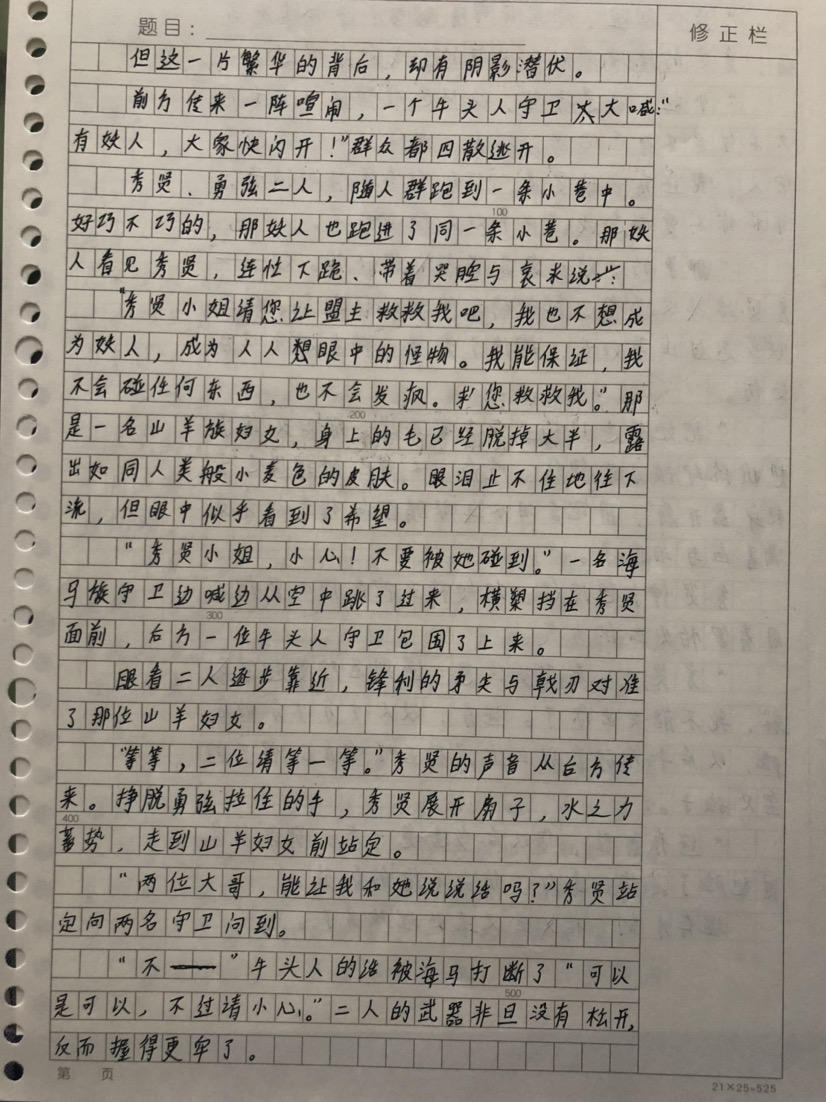 题目：
修正栏
但这一片繁华的背后，却有阴影潜伏。
前方传来一阵喧闹，一个牛头人守卫大喊："
有妖人，大家快闪开！"群众都四散逃开。
秀贤、勇弦二人，随人群跑到一条小巷中。
100
好巧不巧的，那妖人也跑进了同一条小巷。那妖
人看见秀贤，连忙下跪、带着哭腔与哀求说：
"秀贤小姐请您让盟主救救我吧，我也不想成
为妖人，成为人人想眼中的怪物。我能保证，我
不会碰任何东西，也不会发疯。求您救救我。"那
200
是一名山羊族妇女，身上的毛已经脱掉大半，露
出如同人类般小麦色的皮肤。眼泪止不住地往下
流，但眼中似乎看到了希望。
"秀贤小姐，小心！不要被她碰到。"一名海
马族守卫边喊边从空中跳了过来，横槊挡在秀贤
300
面前，后方一位牛头人守卫包围了上来。
眼看二人逐步靠近，锋利的矛尖与戟刃对准
了那位山羊妇女。
"等等，二位请等一等。"秀贤的声音从后方传
来。挣脱勇弦拉住的手，秀贤展开扇子，水之力
400
蓄势，走到山羊妇女前站定。
"两位大哥，能让我和她说说话吗？"秀贤站
定向两名守卫问到。
"不——"牛头人的话被海马打断了"可以
500
是可以，不过请小心。"二人的武器非但没有松开，
反而握得更牢了。
第 页
21×25=525